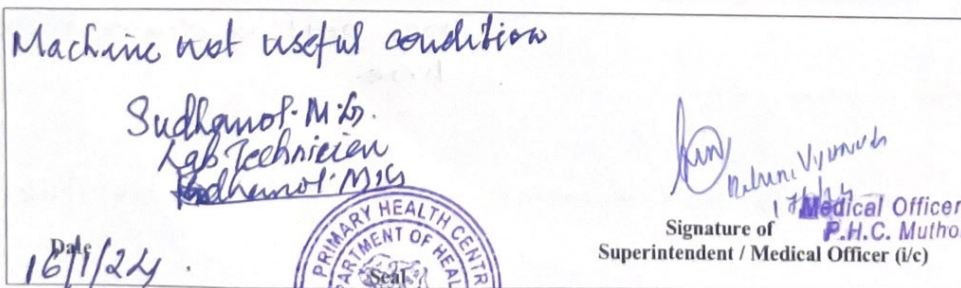 Machine not useful condition
Sudhamol. M. G.
Lab Technician
Sudhamol. M. G
Date
16/1/24.
PRIMARY HEALTH CENTR
Seal
Medical Officer
P.H.C. Mutho
Signature of
Superintendent / Medical Officer (i/c)